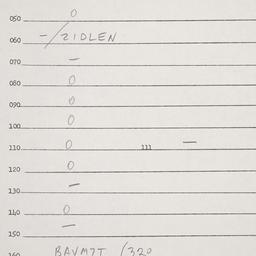 050 0
060 -/ZIDLEN
070 -
080 0
090 0
100 0
110 0 111 -
120 0
130 -
140 0
150 -
160 BAVM7T /320